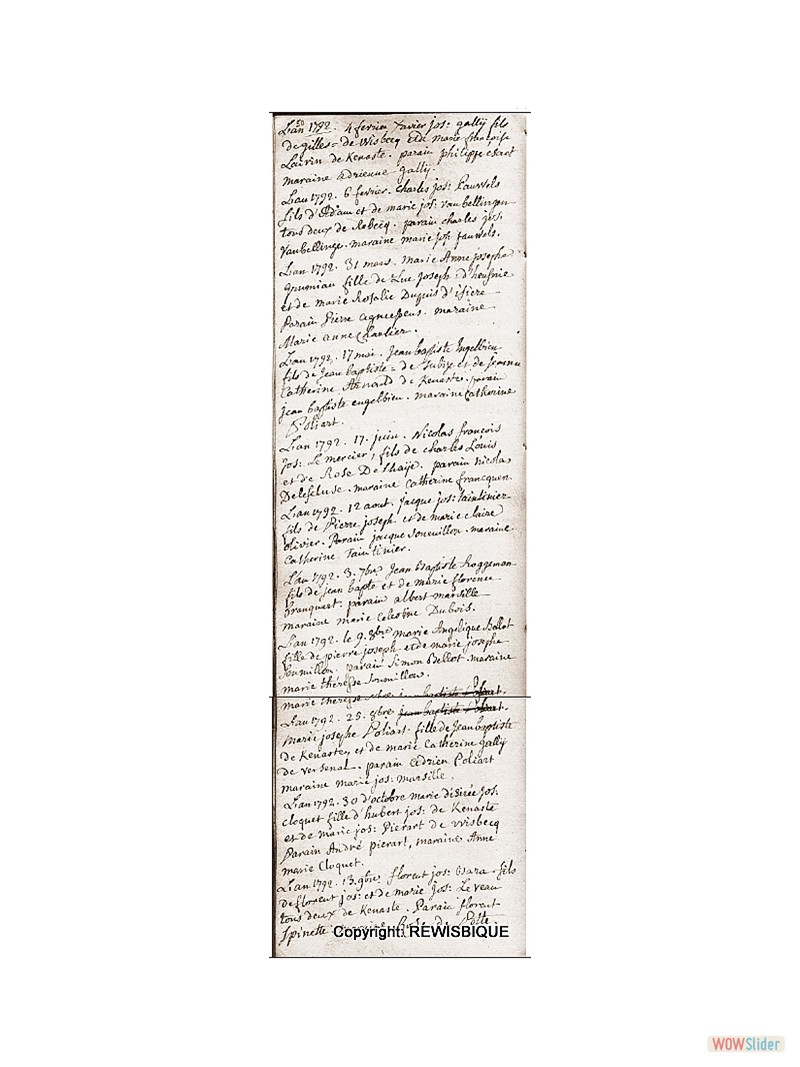 30
L'an 1792. 4 fevrier Xavier jos: gally fils
de gilles = de Wisbecq et de marie françoise
Laurin de Kenaste. parain philippe
maraine adrienne gally.
L'an 1792. 6 fevrier. Charles jos: Pauwels
fils d'Adam et de marie jos: vanbellingen
tous deux de Robecq. parain charles jos:
vanbellinge. maraine marie jos: pauwels.
L'an 1792. 31 mars. Marie Anne josephe
fille de Luc Joseph d'
et de marie Rosalie Duquis d'isiere
Parain Pierre agneessens. maraine
Marie anne Charlier.
L'an 1792. 17 mai. Jean baptiste Ingelbien
fils de Jean baptiste = de Tubize et de jeanne
Catherine Arnould de Kenaste. parain
jean baptiste engelbien. maraine Catherine
Poliart.
L'an 1792. 17. juin. Nicolas francois
Jos: Le mercier, fils de charles Louis
et de Rose De lhaije. parain nicolas
Delescluse. maraine Catherine francquen.
L'an 1792. 12 aout. jacque jos: taintinier
fils de Pierre joseph et de marie claire
olivier. Parain jacque soumillon. maraine
Catherine Taintinier.
L'an 1792. 3. 7bre Jean Baptiste Roggeman
fils de jean bapte et de marie florence
Branquart. parain albert marsille
maraine marie Celestine Dubois.
L'an 1792. le 9. 8bre marie Angelique Bellot
fille de pierre joseph et de marie josephe
Soumillon. parain Simon Bellot. maraine
marie thérèse Soumillon.
L'an 1792. 25. 8bre jean baptiste Poliart.
marie josephe Poliart. fille de Jean baptiste
de Kenaste, et de marie Catherine gally
de versenal. parain adrien Poliart
maraine marie jos: marsille.
L'an 1792. 30 d'octobre marie désirée jos:
cloquet fille d'hubert jos: de Kenaste
et de marie jos: Pierart de wisbecq
Parain André pierart, maraine Anne
marie Cloquet.
L'an 1792. 13. 9bre florent jos: Bara fils
de florent jos: et de marie jos: Leveau
tous deux de Kenaste. Parain florent
Spinette
Copyright: REWISBIQUE
WOWSlider